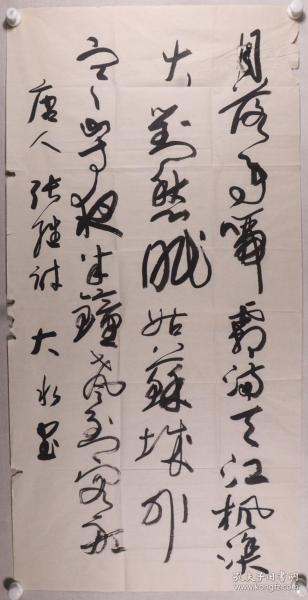 月落烏啼霜滿天江楓漁
火對愁眠姑蘇城外
寒山寺夜半鐘聲到客船
唐人張繼詩 大水
孔夫子旧书网